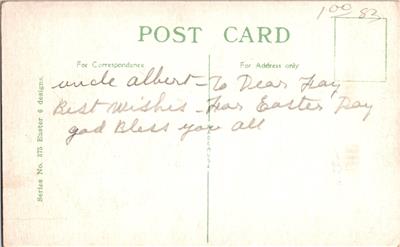 1 00 83
POST CARD
For Correspondence
For Address only
uncle albert - To Dear Fay
Best Wishes - For Easter Day
god Bless you all
Series No. 375 Easter 6 designs.